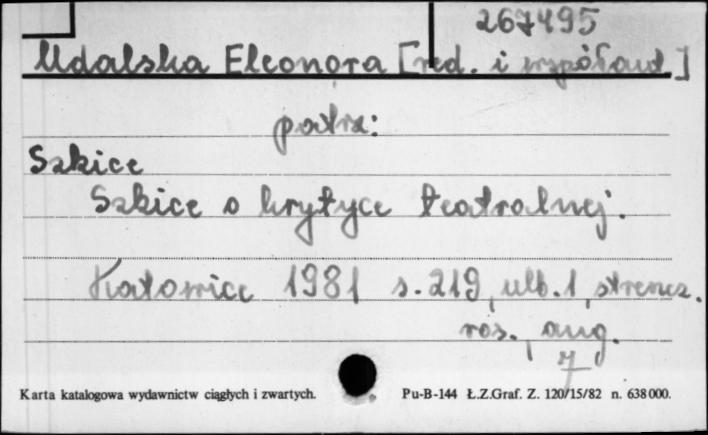 267495
Udalska Eleonora [red. i współaut.]
patrz:
Szkice
Szkice o krytyce teatralnej.
Katowice 1981 s. 219, ulb. 1, streszcz.
ros., ang.
7
Karta katalogowa wydawnictw ciągłych i zwartych. Pu-B-144 Ł.Z.Graf. Z. 120/15/82 n. 638 000.